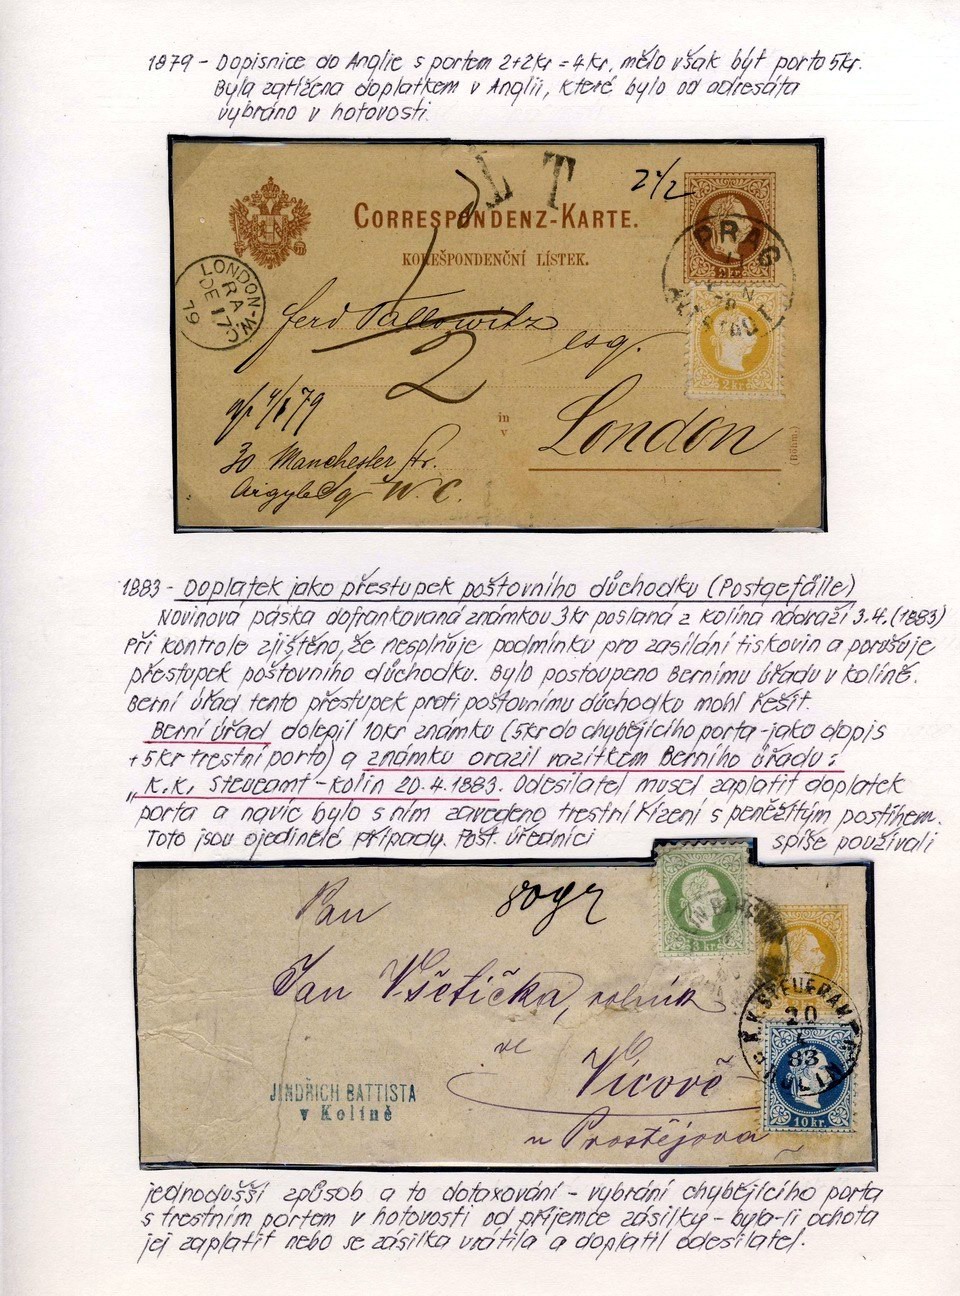 1879 - Dopisnice do Anglie s portem 2+2kr = 4kr, mělo však být porto 5kr.
Byla zatížena doplatkem v Anglii, které bylo od adresáta
vybráno v hotovosti.
T
2 1/2
CORRESPONDENZ-KARTE.
KOREŠPONDENČNÍ LÍSTEK.
PRAG
2 kr.
LONDON-W.C
RA
DE 17
79
2kr.
Ferd Tallowitz
esq.
2
4/79
in
v
London
(Böhm.)
30 Manchester Str.
Argyle Sq W.C.
1883 - Doplatek jako přestupek poštovního důchodku (Postgefälle)
Novinová páska dofrankovaná známkou 3kr poslaná z Kolína nádraží 3.4.(1883)
Při kontrole zjištěno, že nesplňuje podmínku pro zasílání tiskovin a porušuje
přestupek poštovního důchodku. Bylo postoupeno Bernímu úřadu v Kolíně.
Berní úřad tento přestupek proti poštovnímu důchodku mohl řešit.
Berní úřad dolepil 10kr známku (5kr do chybějícího porta - jako dopis
+ 5kr trestní porto) a známku orazil razítkem Berního úřadu:
„K.K. Steueamt - Kolin 20.4.1883. Odesilatel musel zaplatit doplatek
porta a navíc bylo s ním zavedeno trestní řízení s peněžitým postihem.
Toto jsou ojedinělé případy. Pošt. úředníci spíše používali
Pan
80gr
3 kr.
Jan Všetička, rolník
ve
Vícově
u Prostějova
K.K. STEUERAMT
20
4
83
KOLIN
10 kr.
JINDŘICH BATTISTA
v Kolíně
jednodušší způsob a to dotaxování - vybrání chybějícího porta
s trestním portem v hotovosti od příjemce zásilky - byla-li ochota
jej zaplatit nebo se zásilka vrátila a doplatil odesilatel.